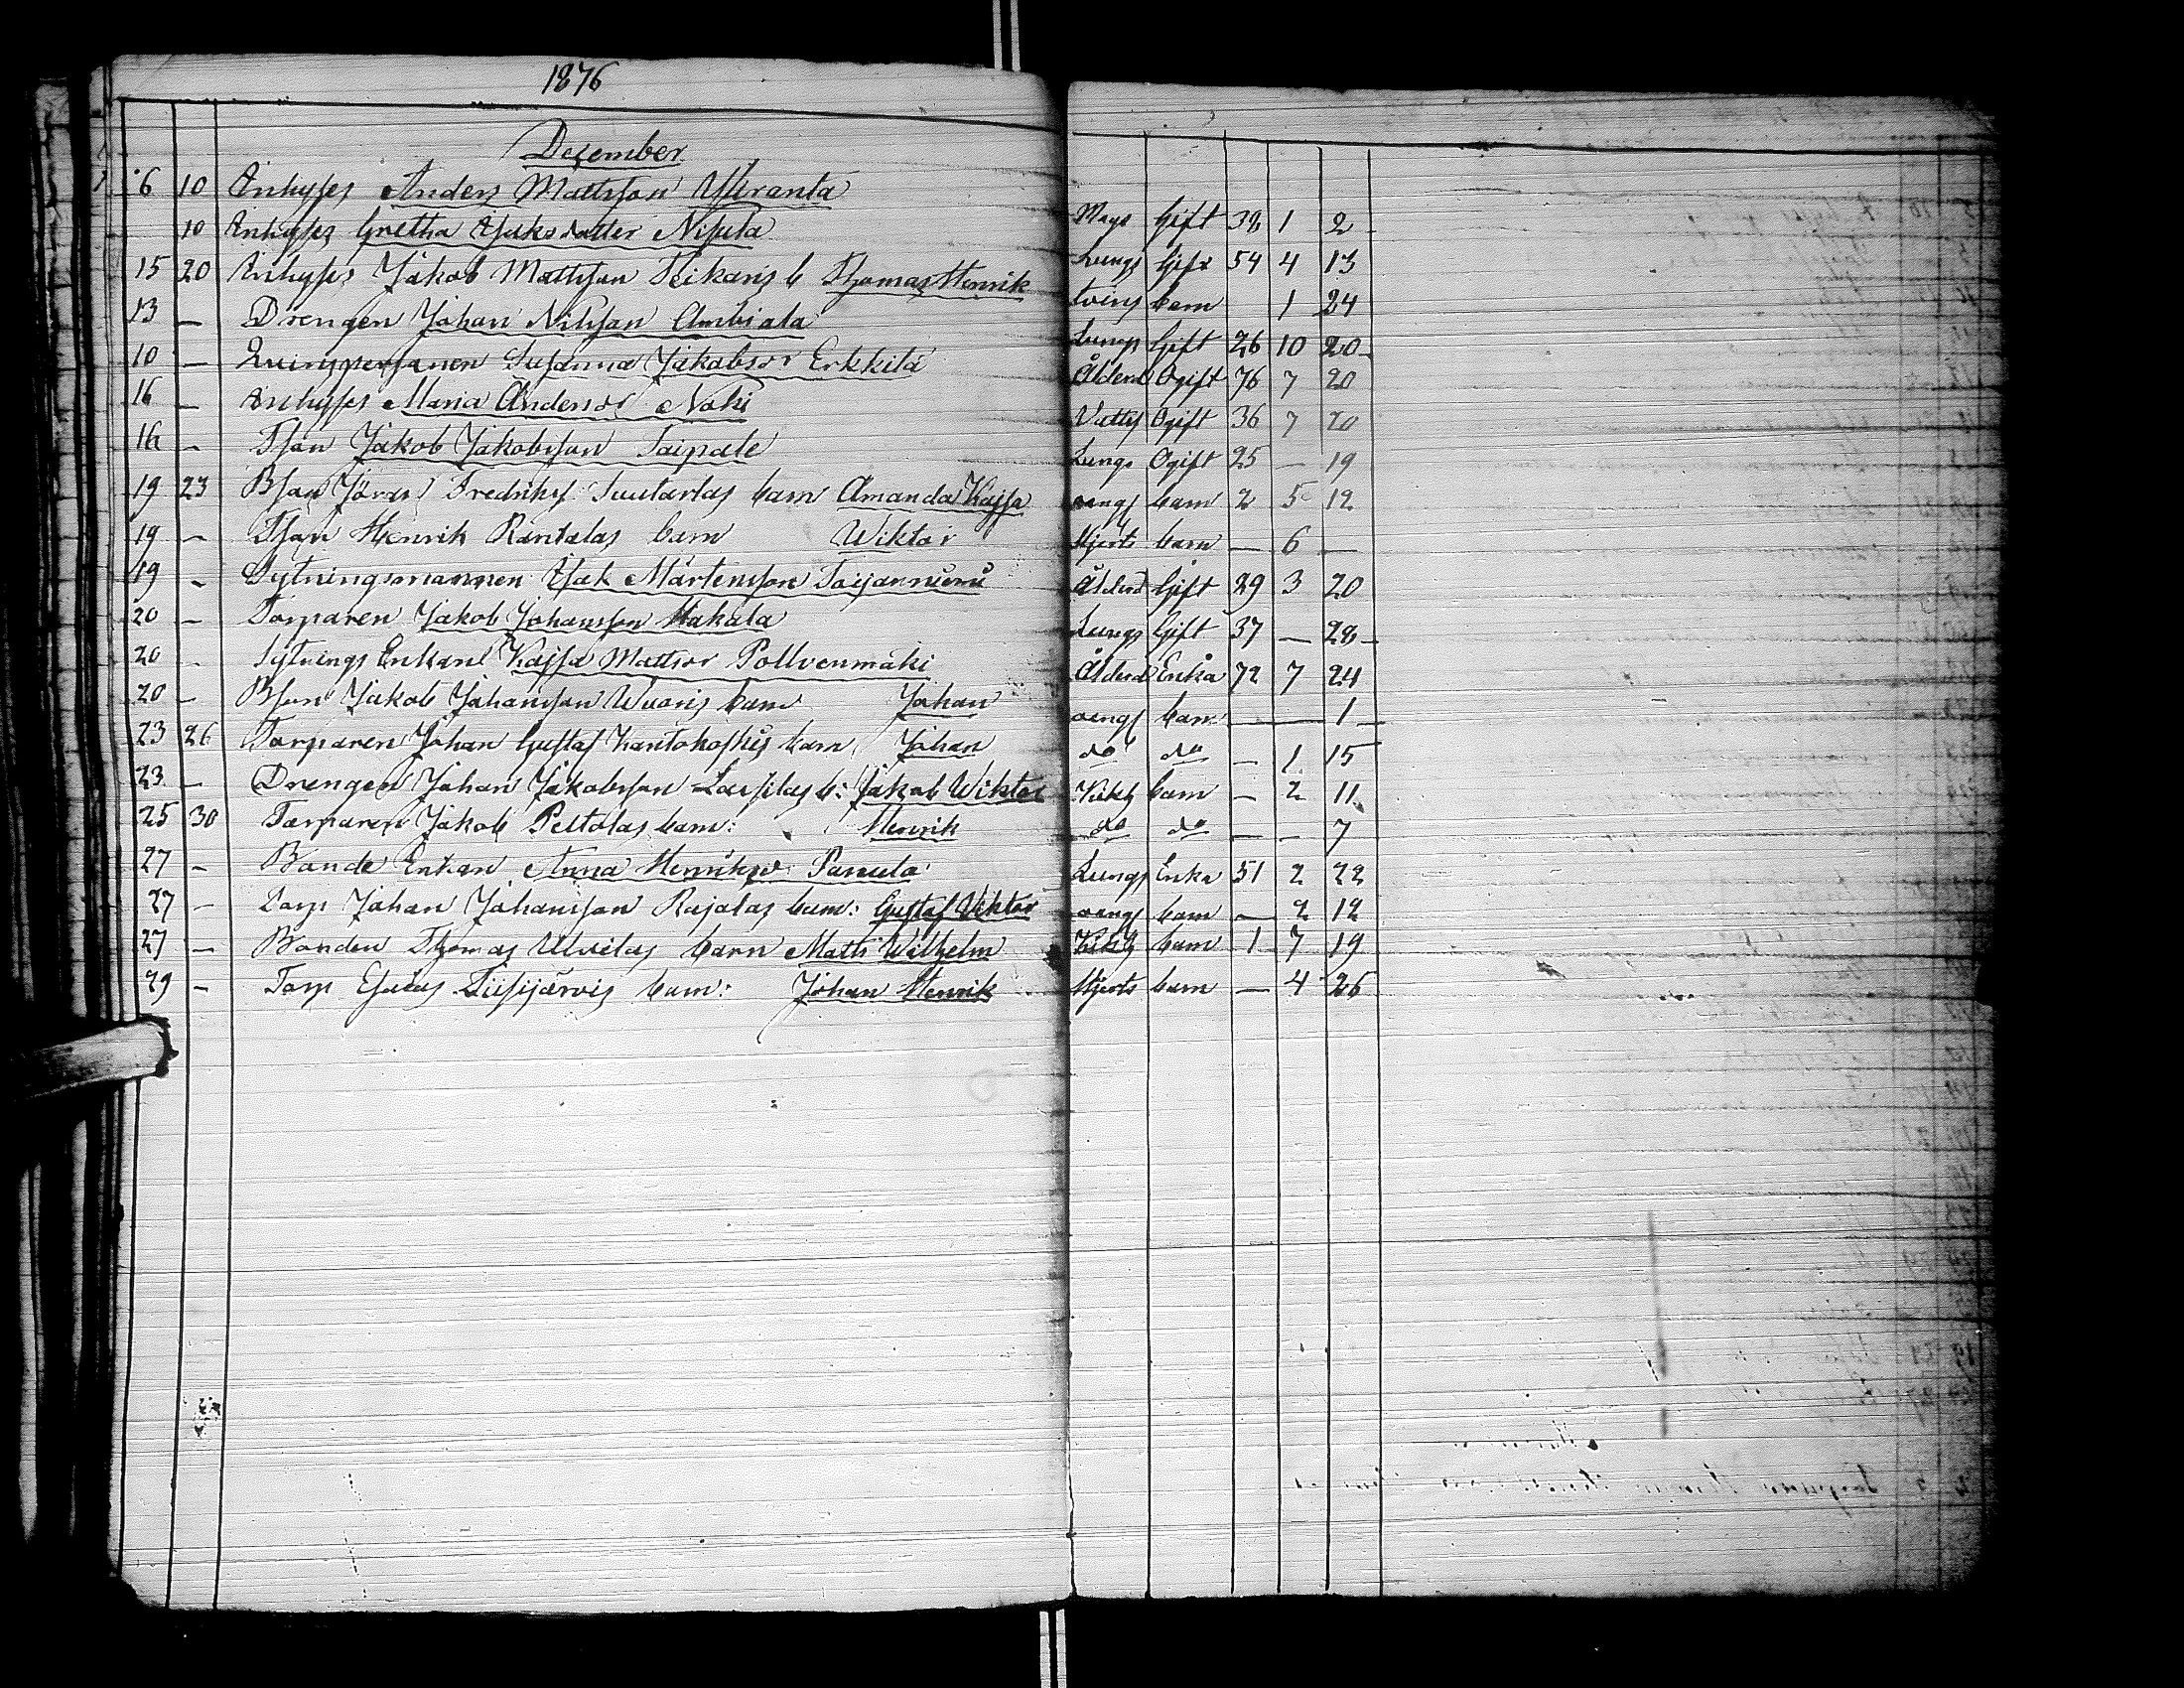 1876
Dezember
6 10 Inhyses Anders Mattsson Yliranta Mags Gift 39 1 2
10 Inhyses Gretha Isaksdatter Nisula Lungs Gift 54 4 13
15 20 Inhyses Jakob Mattsson Reikars b Thomas Henrik tvins barn 1 24
13 — Drengen Johan Nilsson Ambiala Lungs Gift 26 10 20
10 — Susanna Jakobsdr Erkkilä Ålderd Ogift 76 7 20
16 — Inhyses Maria Andersdr Noki Vatts Ogift 36 7 20
16 — Tson Jakob Jakobsson Taipale Lungs Ogift 25 — 19
19 23 Bson Jöran Fredriks Suutarlas barn Amanda Kajsa barn 2 5 12
19 — Tson Henrik Rantalas barn Wiktor Hjerts barn — 6 —
19 — Sytningsmannen Isak Mårtensson Toijanniemi Ålderd Gift 29 3 20
20 — Torparen Jakob Johansson Hakala Lungs Gift 37 — 28
20 — Sytnings Enkan Kajsa Mattsdr Pollvenmäki Ålderd Enka 72 7 24
20 — Bson Jakob Johansson Wuoris barn Johan barn — — 1
23 26 Torparen Johan Gustaf Kantokoskis barn Johan do do — 1 15
23 — Drengen Johan Jakobsson Lassilas b: Jakob Wiktor Kikh barn — 2 11
25 30 Torparen Jakob Peltolas barn: Henrik do do — — 7
27 — Bonde Enkan Anna Henriksdr Panula Lungs Enka 51 2 22
27 — Torp Johan Johansson Rajalas barn: Gustaf Viktor barn — 2 12
27 — Bonden Thomas Ulvilas barn Matts Wilhelm Kikh barn 1 7 19
29 — Torp Esaias Siisijärvis barn: Johan Henrik Hjerts barn — 4 26